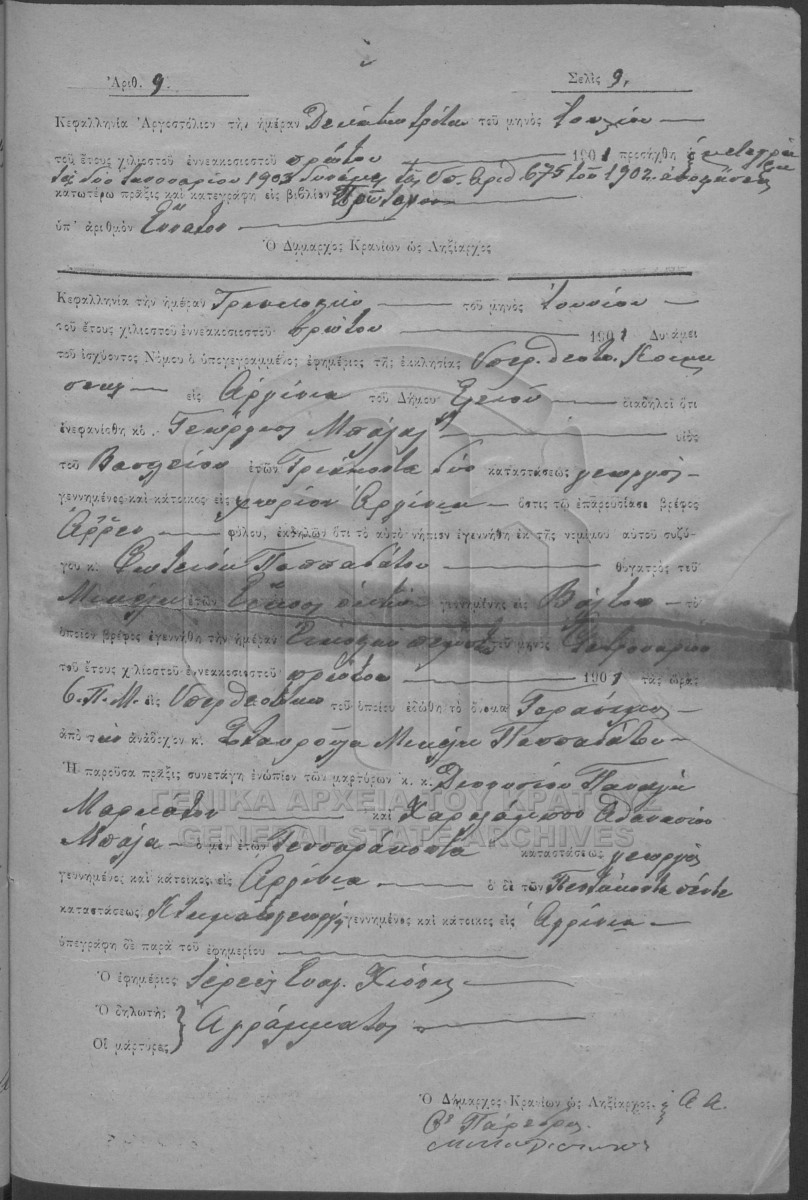 Ἀριθ. 9.
Σελὶς 9,
Κεφαλληνία Ἀργοστόλιον τὴν ἡμέραν Δεκάτην τρίτην τοῦ μηνὸς Ἰουλίου
τοῦ ἔτους χιλιοστοῦ ἐννεακοσιοστοῦ πρώτου 1901 προσήχθη ἡ
τὰς δύο Ἰανουαρίου 1903 δυνάμει τῆς Ὑπ. Ἀριθ 675 τοῦ 1902
κατωτέρω πρᾶξις καὶ κατεγράφη εἰς βιβλίον Πρῶτον
ὑπ' ἀριθμὸν Ἔννατον
Ὁ Δήμαρχος Κρανίων ὡς Ληξίαρχος
Κεφαλληνία τὴν ἡμέραν Τριακοστὴν τοῦ μηνὸς Ἰουνίου
τοῦ ἔτους χιλιοστοῦ ἐννεακοσιοστοῦ πρώτου 1901 Δυνάμει
τοῦ ἰσχύοντος Νόμου ὁ ὑπογεγραμμένος ἐφημέριος τῆς ἐκκλησίας Ὑπερ. Θεοτο. Κοιμή
σεως εἰς Ἀργίνια τοῦ Δήμου Ἐλειοῦ διαδηλοῖ ὅτι
ἐνεφανίσθη κὸ. Γεώργιος Μπάλας υἱὸς
τοῦ Βασιλείου ἐτῶν Τριάκοντα δύο καταστάσεως γεωργὸς
γεννημένος καὶ κάτοικος εἰς χωρίον Ἀργίνια ὅστις τῷ ἐπαρουσίασε βρέφος
Ἄρρεν φύλου, ἐκδηλῶν ὅτι τὸ αὐτὸ νήπιον ἐγεννήθη ἐκ τῆς νομίμου αὐτοῦ συζύ-
γου κ. Φωτεινῆς Παππαδάτου θυγατρὸς τοῦ
Μικέλη ἐτῶν Εἴκοσι πέντε γεννημένης εἰς Βάλτα τὸ
ὁποῖον βρέφος ἐγεννήθη τὴν ἡμέραν Εἰκοστὴν πέμπτην τοῦ μηνὸς Φεβρουαρίου
τοῦ ἔτους χιλιοστοῦ ἐννεακοσιοστοῦ πρώτου 1901 τὰς ὥρας
6. Π. Μ. εἰς τοῦ ὁποίου ἐδόθη τὸ ὄνομα Γεράσιμος
ἀπὸ τὴν ἀνάδοχον κ. Σταυρούλα Μικέλη Παππαδάτου
Ἡ παροῦσα πρᾶξις συνετάγη ἐνώπιον τῶν μαρτύρων κ. κ. Διονυσίου Παναγῆ
Μαρκάτου καὶ Χαραλάμπου Ἀθανασίου
Μπάλα ὁ μὲν ἐτῶν Τεσσαράκοντα καταστάσεως γεωργὸς
γεννημένος καὶ κάτοικος εἰς Ἀργίνια ὁ δὲ τῶν Πεντήκοντα πέντε
καταστάσεως Κτηματογεωργὸς γεννημένος καὶ κάτοικος εἰς Ἀργίνια
ὑπεγράφη δὲ παρὰ τοῦ ἐφημερίου
Ὁ ἐφημέριος Ἱερεὺς Εὐαγ.
Ὁ δηλωτὴς
Ἀγράμματοι
Οἱ μάρτυρες
Ὁ Δήμαρχος Κρανίων ὡς Ληξίαρχος. Α Α.
Πάρεδρος
ΓΕΝΙΚΑ ΑΡΧΕΙΑ ΤΟΥ ΚΡΑΤΟΥΣ
GENERAL STATE ARCHIVES